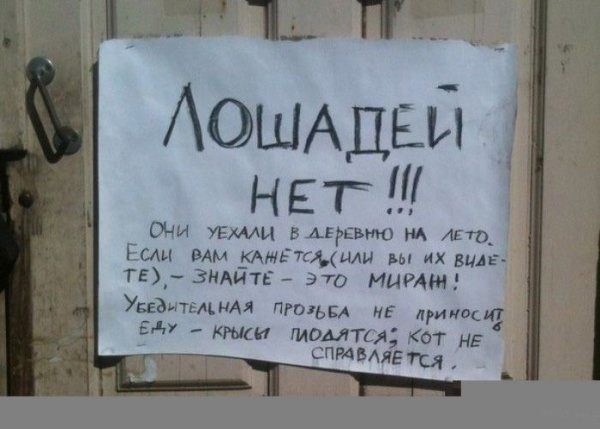 ЛОШАДЕЙ
НЕТ!!!
ОНИ УЕХАЛИ В ДЕРЕВНЮ НА ЛЕТО.
ЕСЛИ ВАМ КАЖЕТСЯ,(ИЛИ ВЫ ИХ ВИДЕ-
ТЕ),- ЗНАЙТЕ - ЭТО МИРАЖ!
УБЕДИТЕЛЬНАЯ ПРОЗЬБА НЕ ПРИНОСИТЬ
ЕДУ - КРЫСЫ ПЛОДЯТСЯ; КОТ НЕ
СПРАВЛЯЕТСЯ.